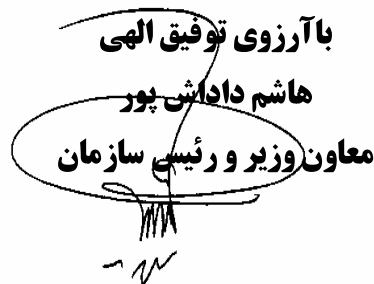 باآرزوی توفیق الهی
هاشم داداش پور
معاون وزیر و رئیس سازمان